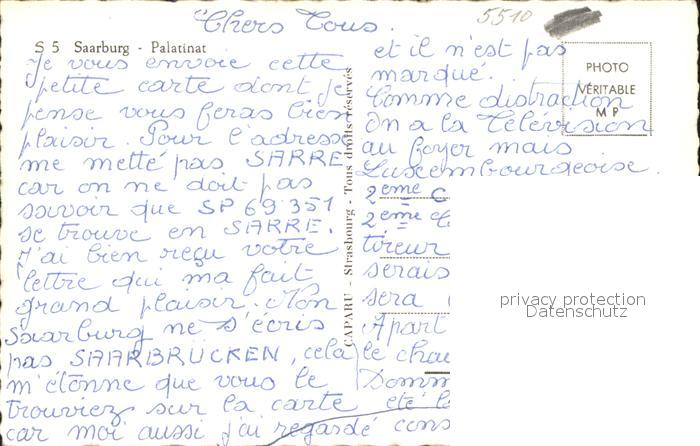 5510
Chers Tous.
S 5 Saarburg - Palatinat
Je vous envoie cette
petite carte dont je
pense vous feras bien
plaisir. Pour l'adresse
me metté pas SARRE
car on ne doit pas
savoir que SP 69 351
se trouve en SARRE.
J'ai bien reçu votre
lettre qui ma fait
grand plaisir. Mon
Saarburg ne s'écris
pas SAARBRUCKEN, cela
m'étonne que vous le
trouviez sur la carte
car moi aussi j'ai regardé
CAPARU - Strasbourg - Tous droits réservés
et il n'est pas
marqué.
Comme distraction
on a la Télévision
au foyer mais
Luxembourgeoise.
2eme C
2eme
tireur
serais
sera
Apart
le chau
Domm
été l
cons
PHOTO
VÉRITABLE
M P
privacy protection
Datenschutz